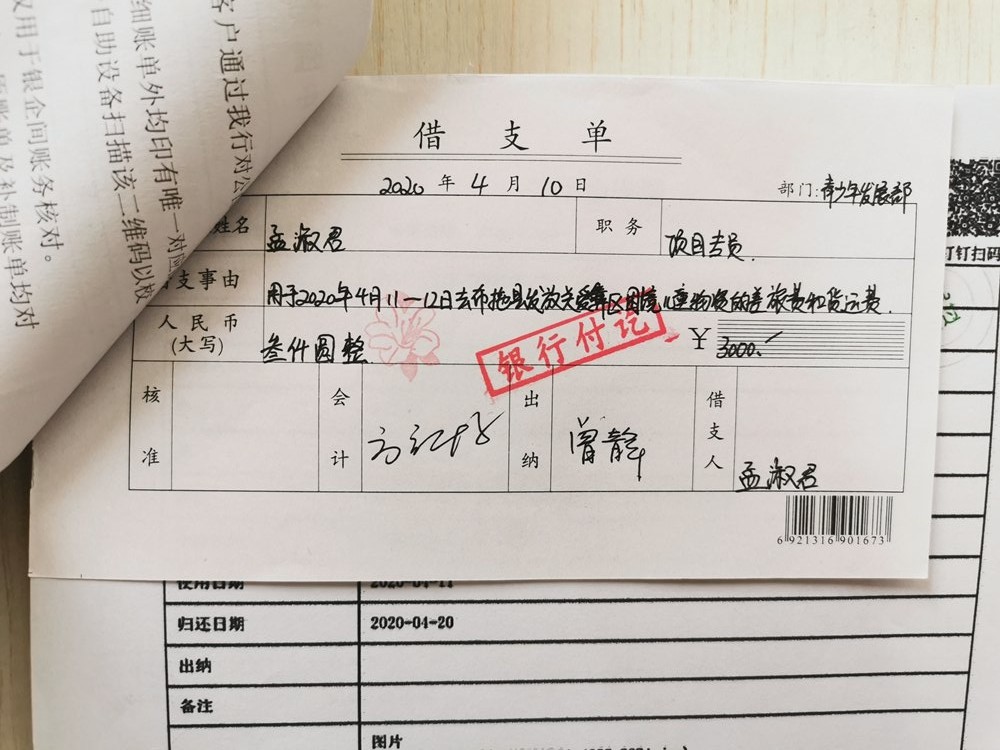 客户通过我行对公
细账单外均印有唯一对
自助设备扫描该二维码以校
仅用于银企间账务核对。
账单及补制账单均对
借支单
2020年4月10日
部门:青少年发展部
姓名 孟淑君 职务 项目专员.
支事由 用于2020年4月11-12日去布拖县发放关爱 区困境儿童物资的差旅费和货运费.
人民币(大写) 叁仟圆整 ¥ 3000.
银行付讫
核准 会计 出纳 曾静 借支人 孟淑君
6 921316 901673
钉钉扫码
使用日期 2020-04-11
归还日期 2020-04-20
出纳
备注
图片